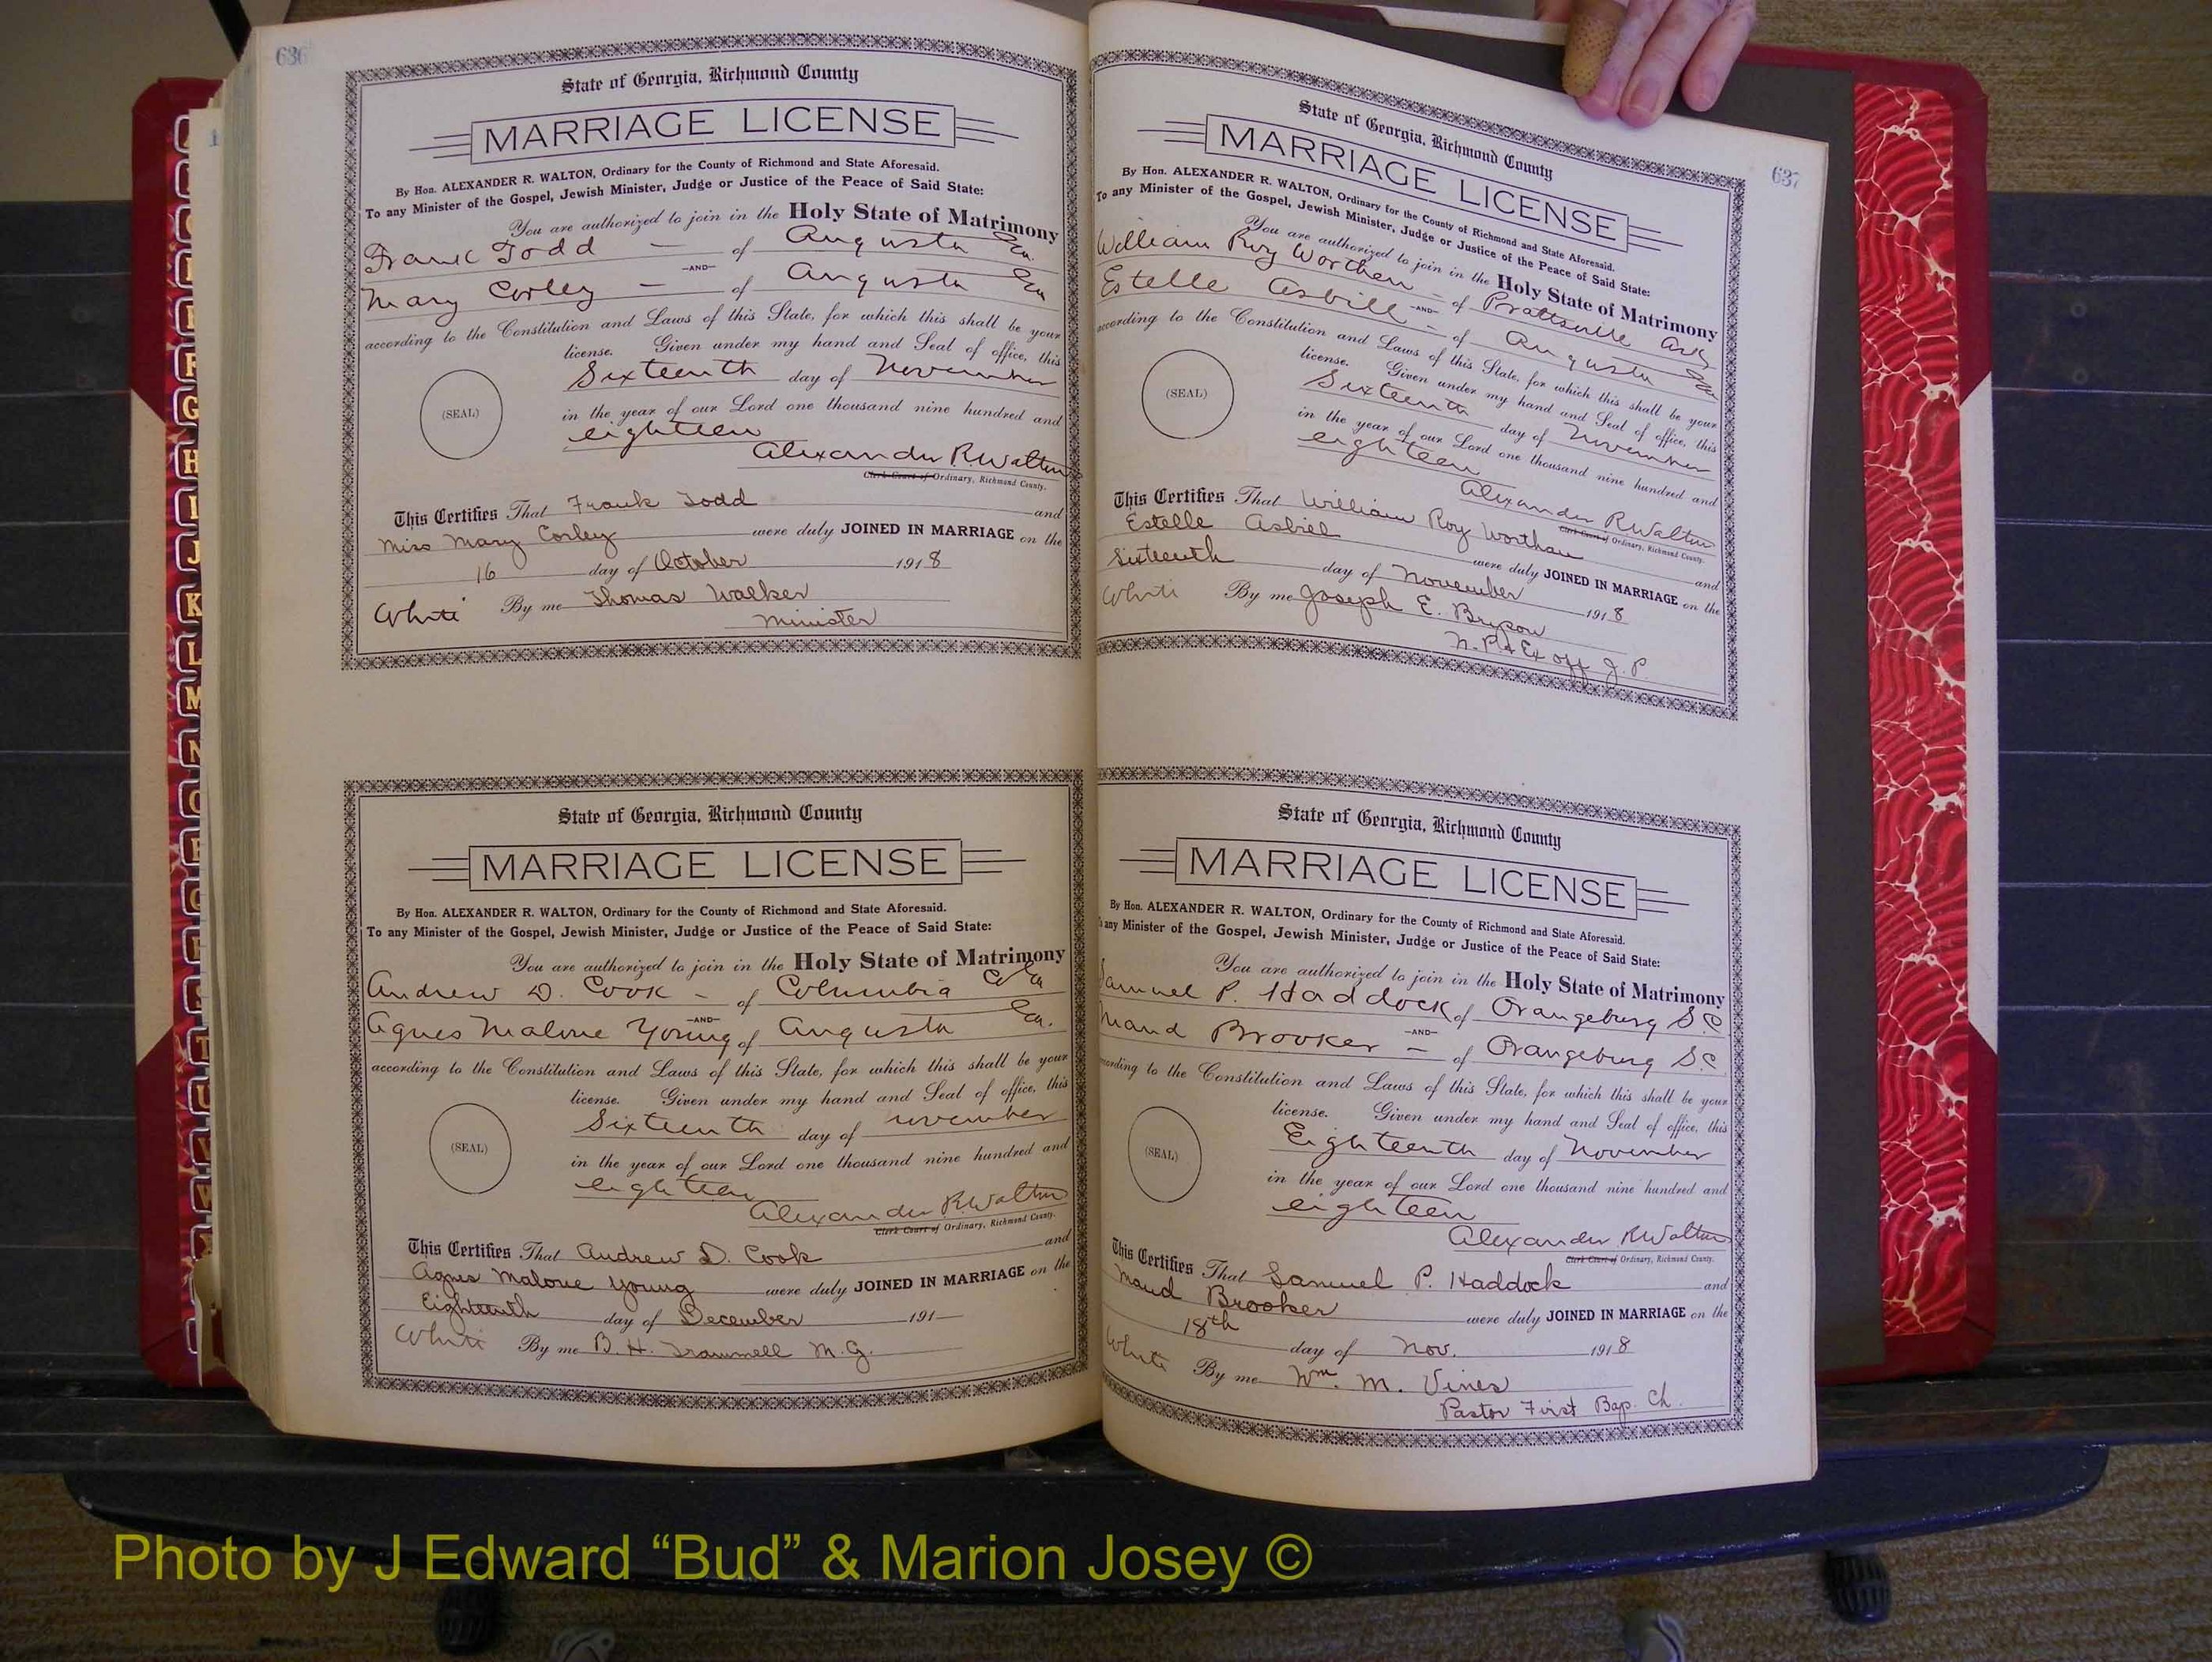 636
State of Georgia, Richmond County
MARRIAGE LICENSE
By Hon. ALEXANDER R. WALTON, Ordinary for the County of Richmond and State Aforesaid.
To any Minister of the Gospel, Jewish Minister, Judge or Justice of the Peace of Said State:
You are authorized to join in the Holy State of Matrimony
Frank Todd — of Augusta Ga.
—AND—
Mary Corley — of Augusta Ga
according to the Constitution and Laws of this State, for which this shall be your
license. Given under my hand and Seal of office, this
Sixteenth day of November
(SEAL)
in the year of our Lord one thousand nine hundred and
eighteen
Alexander R. Walton
Clerk Court of Ordinary, Richmond County.
This Certifies That Frank Todd and
Miss Mary Corley were duly JOINED IN MARRIAGE on the
16 day of October 1918
White By me Thomas Walker
Minister
State of Georgia, Richmond County
MARRIAGE LICENSE
By Hon. ALEXANDER R. WALTON, Ordinary for the County of Richmond and State Aforesaid.
To any Minister of the Gospel, Jewish Minister, Judge or Justice of the Peace of Said State:
You are authorized to join in the Holy State of Matrimony
Andrew D. Cook — of Columbia Co Ga
—AND—
Agnes Malone Young of Augusta Ga.
according to the Constitution and Laws of this State, for which this shall be your
license. Given under my hand and Seal of office, this
Sixteenth day of November
(SEAL)
in the year of our Lord one thousand nine hundred and
eighteen
Alexander R. Walton
Clerk Court of Ordinary, Richmond County.
This Certifies That Andrew D. Cook and
Agnes Malone Young were duly JOINED IN MARRIAGE on the
Eighteenth day of December 191—
White By me B. H. Trammell M. G.
637
State of Georgia, Richmond County
MARRIAGE LICENSE
By Hon. ALEXANDER R. WALTON, Ordinary for the County of Richmond and State Aforesaid.
To any Minister of the Gospel, Jewish Minister, Judge or Justice of the Peace of Said State:
You are authorized to join in the Holy State of Matrimony
William Roy Worthen — of Prattsville Ark
—AND—
Estelle Asbill — of Augusta Ga
according to the Constitution and Laws of this State, for which this shall be your
license. Given under my hand and Seal of office, this
Sixteenth day of November
(SEAL)
in the year of our Lord one thousand nine hundred and
eighteen
Alexander R. Walton
Clerk Court of Ordinary, Richmond County.
This Certifies That William Roy Worthan and
Estelle Asbill were duly JOINED IN MARRIAGE on the
Sixteenth day of November 1918
White By me Joseph E. Bryson
N. P. & Ex off J. P.
State of Georgia, Richmond County
MARRIAGE LICENSE
By Hon. ALEXANDER R. WALTON, Ordinary for the County of Richmond and State Aforesaid.
any Minister of the Gospel, Jewish Minister, Judge or Justice of the Peace of Said State:
You are authorized to join in the Holy State of Matrimony
Samuel P. Haddock of Orangeburg S.C
—AND—
Maud Brooker — of Orangeburg S.C
according to the Constitution and Laws of this State, for which this shall be your
license. Given under my hand and Seal of office, this
Eighteenth day of November
(SEAL)
in the year of our Lord one thousand nine hundred and
eighteen
Alexander R. Walton
Clerk Court of Ordinary, Richmond County.
This Certifies That Samuel P. Haddock and
Maud Brooker were duly JOINED IN MARRIAGE on the
18th day of Nov. 1918
White By me Wm. M. Vines
Pastor First Bap. Ch.
Photo by J Edward “Bud” & Marion Josey ©